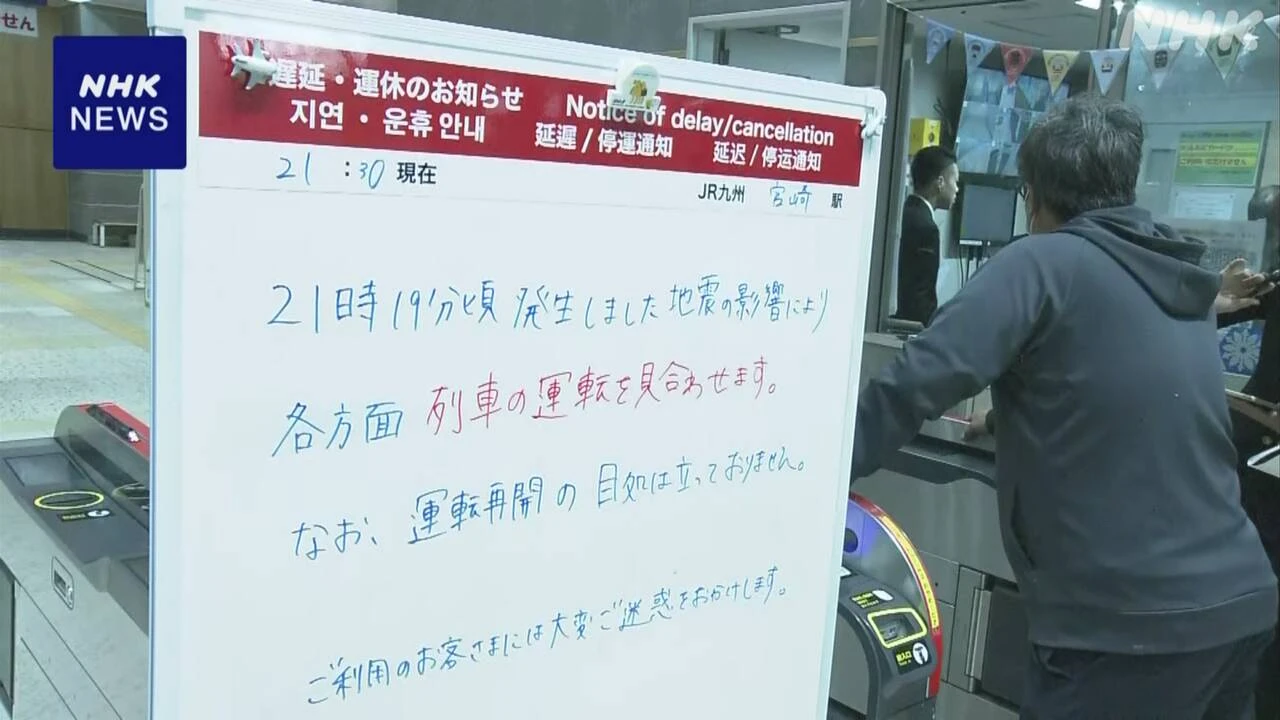 せん
NHK
NEWS
NHK
遅延・運休のお知らせ
Notice of delay/cancellation
지연・운휴 안내
延遲/停運通知
延迟/停运通知
21:30 現在
JR九州 宮崎 駅
21時19分頃 発生しました地震の影響により
各方面 列車の運転を見合わせます。
なお、運転再開の目処は立っておりません。
ご利用のお客さまには大変ご迷惑をおかけします。